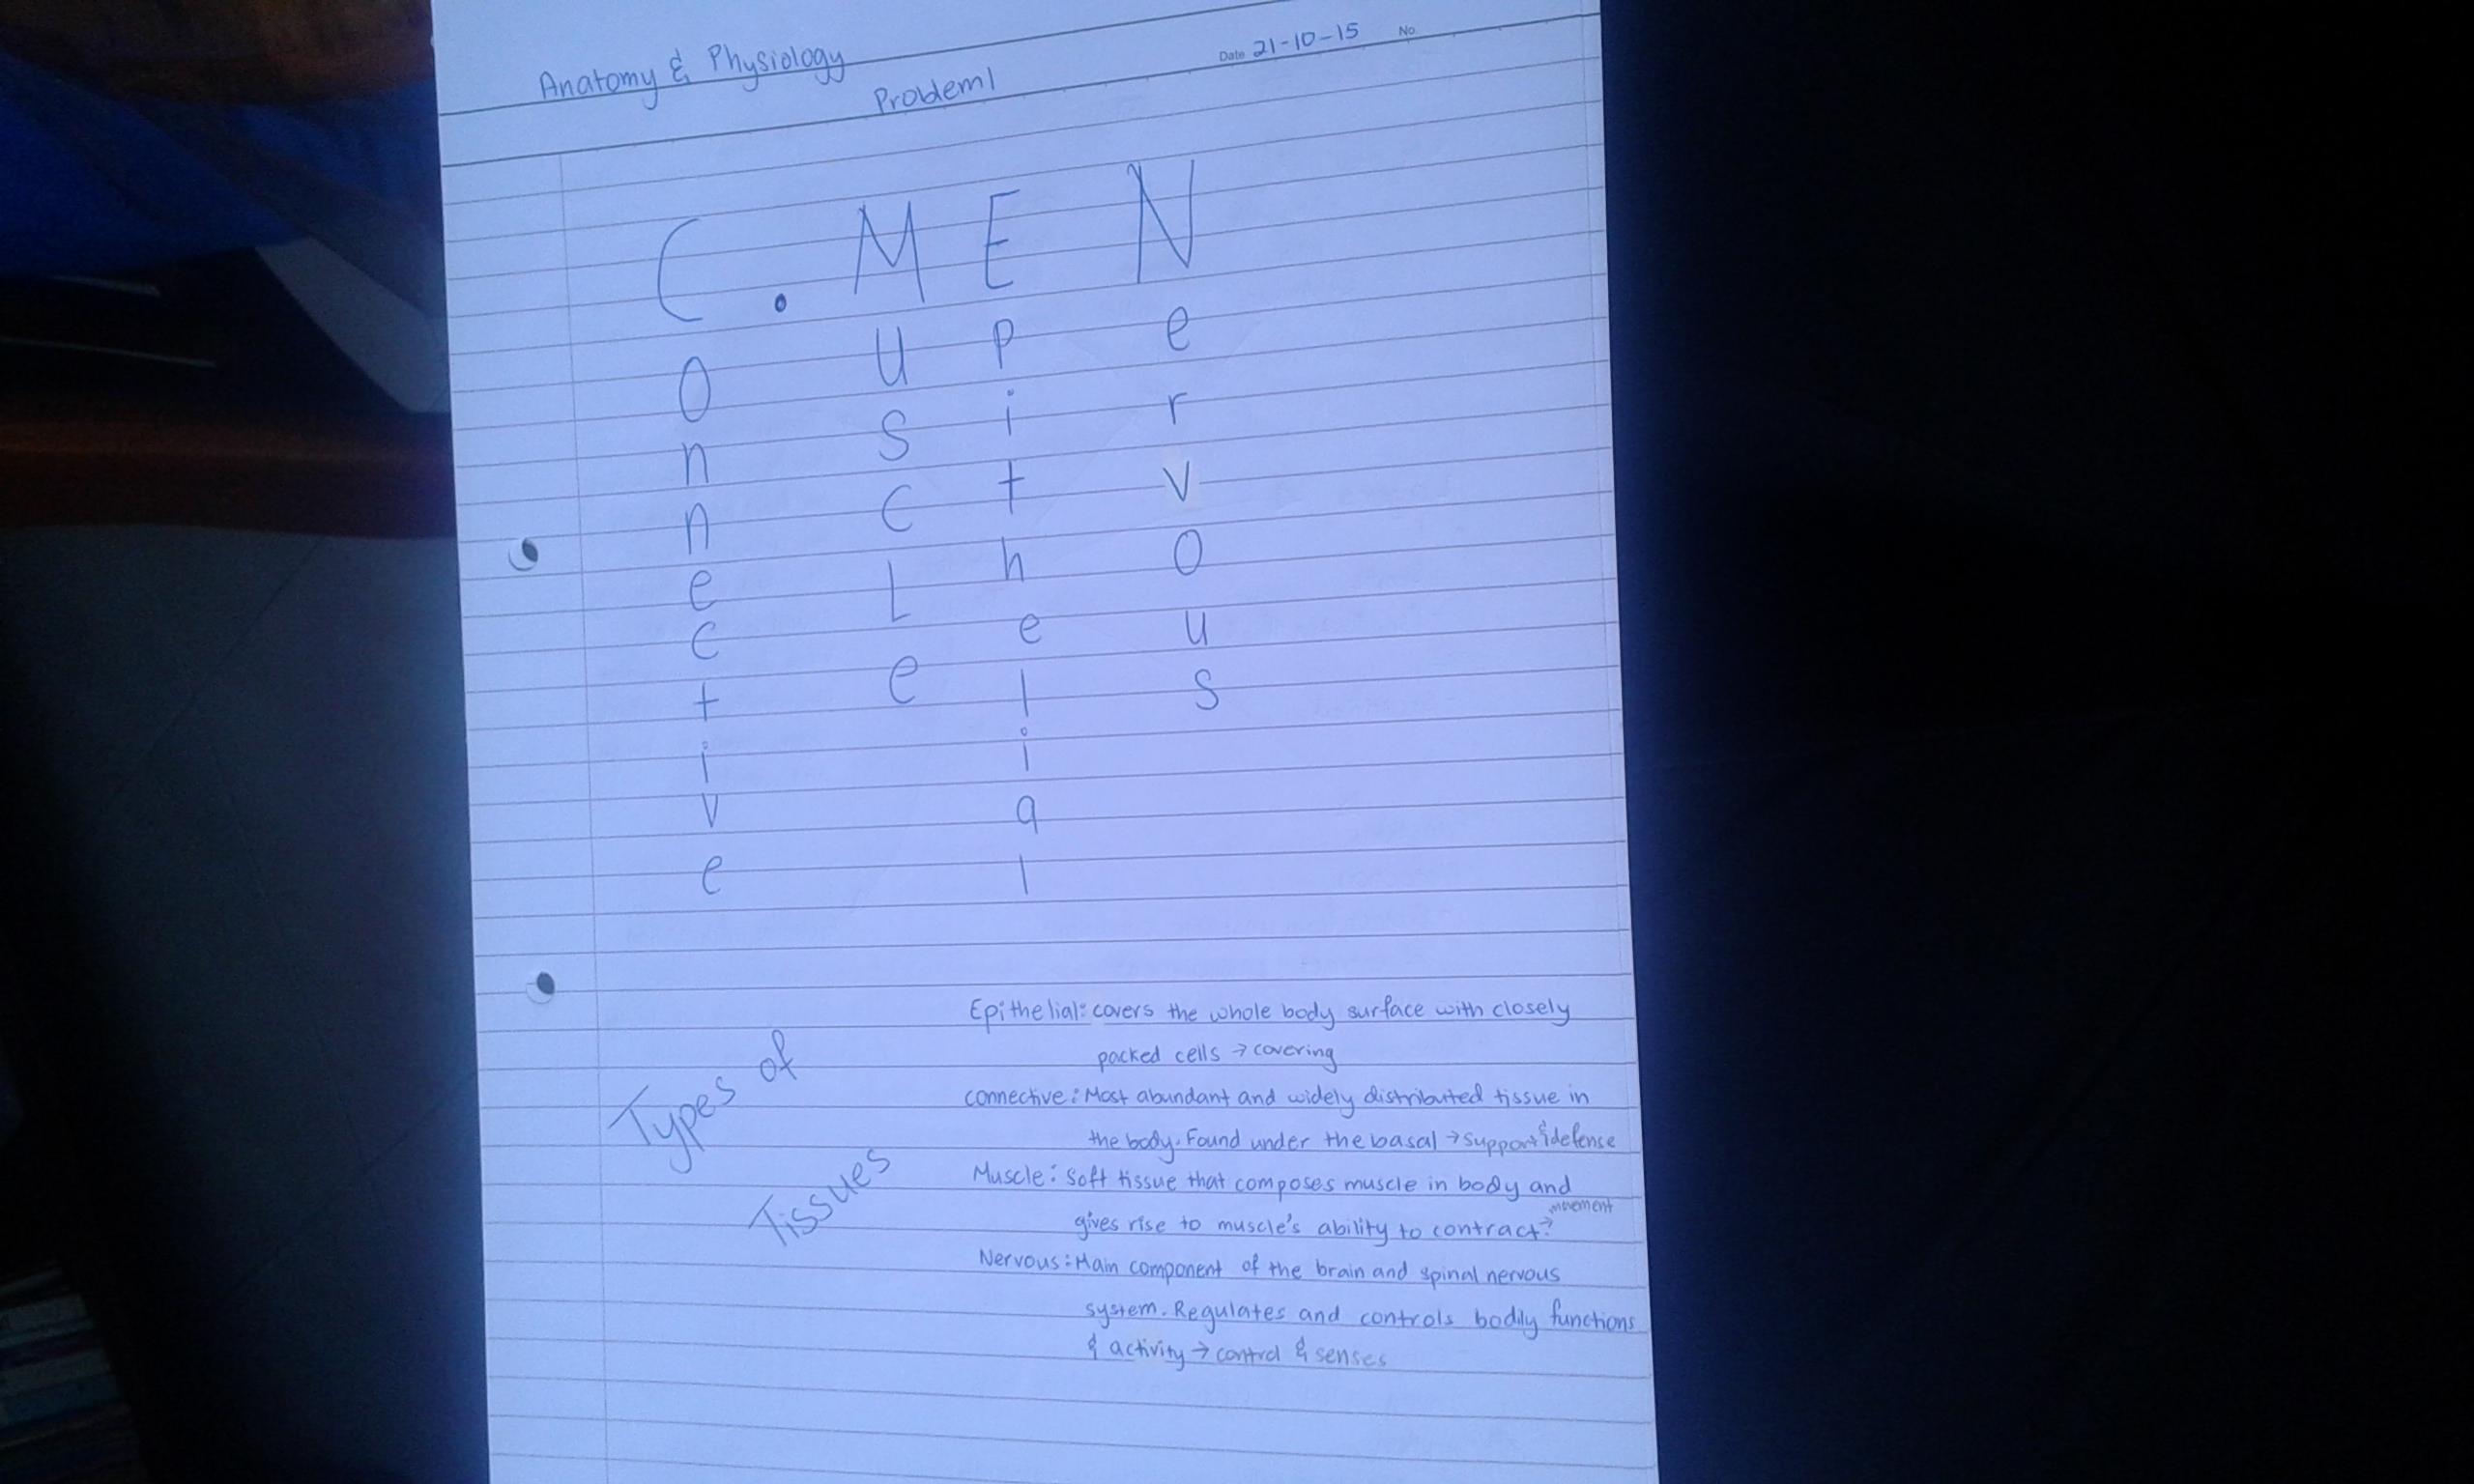 Anatomy & Physiology
Date 21-10-15 No.
Problem 1
C. M E N
onnective
uscLe
pithelial
ervous
Types of
Tissues
Epithelial: covers the whole body surface with closely
packed cells → covering
connective: Most abundant and widely distributed tissue in
the body. Found under the basal → support & defense
Muscle: soft tissue that composes muscle in body and
gives rise to muscle's ability to contract. → movement
Nervous: Main component of the brain and spinal nervous
system. Regulates and controls bodily functions
& activity → control & senses